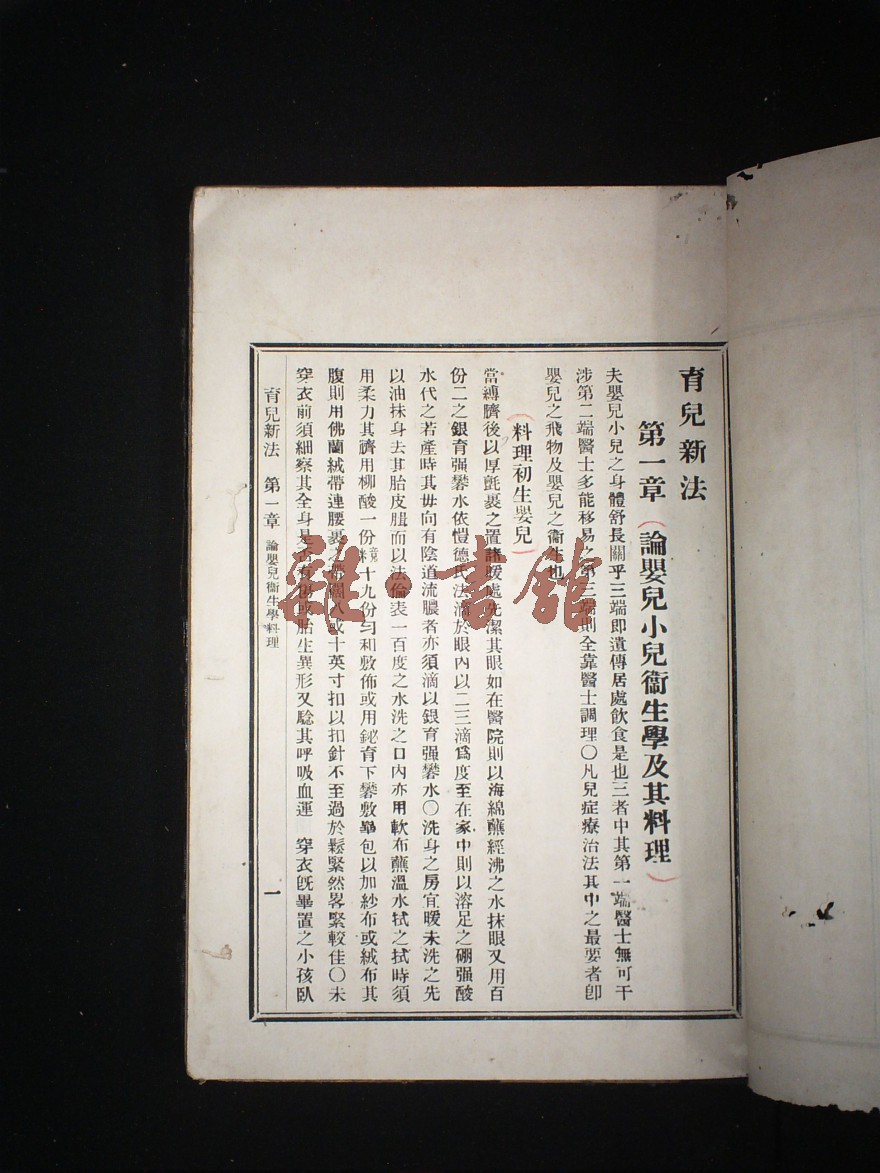 育兒新法
第一章 論嬰兒小兒衞生學及其料理
夫嬰兒小兒之身體舒長關乎三端即遺傳居處飲食是也三者中其第一端醫士無可干
涉第二端醫士多能移易之第三端則全靠醫士調理〇凡兒症療治法其中之最要者卽
嬰兒之飛物及嬰兒之衞生也
料理初生嬰兒
當縛臍後以厚氈裹之置諸暖處先潔其眼如在醫院則以海綿蘸經沸之水抹眼又用百
份二之銀育强礬水依愷德氏法滴於眼內以二三滴爲度至在家中則以溶足之硼强酸
水代之若產時其母向有陰道流膿者亦須滴以銀育强礬水〇洗身之房宜暖未洗之先
以油抹身去其胎皮脂而以法倫表一百度之水洗之口內亦用軟布蘸溫水拭之拭時須
用柔力其臍用柳酸一份 十九份勻和敷佈或用鉍育下礬敷畢包以加紗布或絨布其
腹則用佛蘭絨帶連腰裹之 八或十英寸扣以扣針不至過於鬆緊然畧緊較佳〇未
穿衣前須細察其全身是否有 或胎生異形又騐其呼吸血運 穿衣旣畢置之小孩臥
育兒新法 第一章 論嬰兒衞生學料理 一
雜·書館